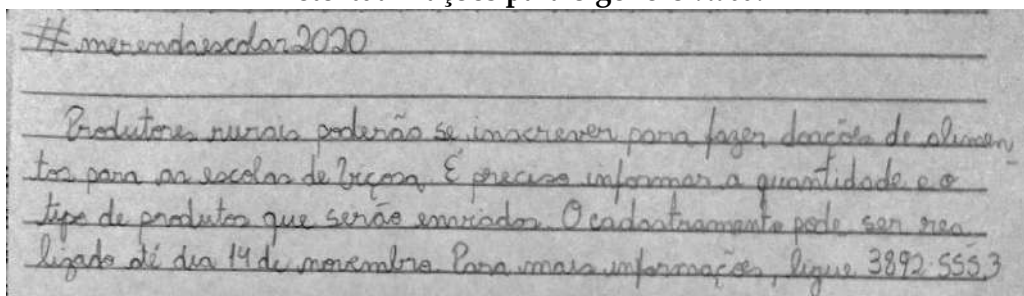 # merendaescolar2020
Produtores rurais poderão se inscrever para fazer doações de alimen-
tos para as escolas de Viçosa. É preciso informar a quantidade e o
tipo de produtos que serão enviados. O cadastramento pode ser rea
lizado até dia 14 de novembro. Para mais informações, ligue 3892.5553